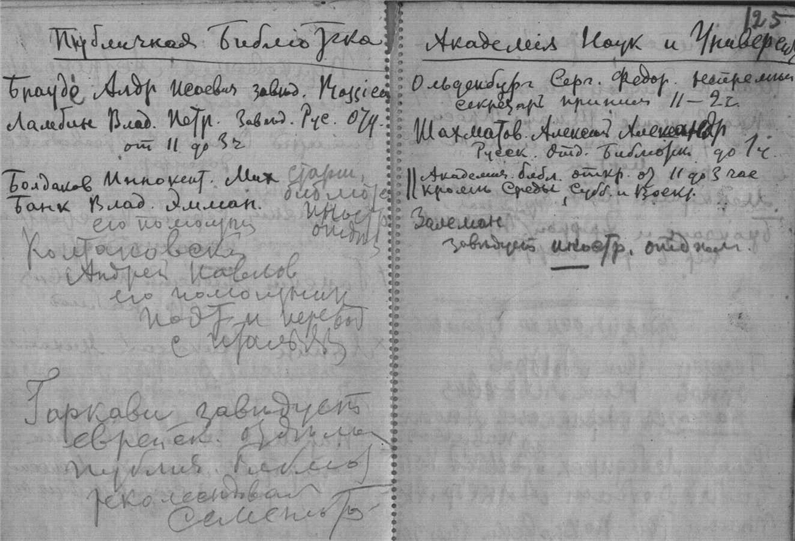 Публичная Библиотека
Браудé Алдр Исаевич завед. Rossica
Ламбин Влад. Петр. Завед. Рус. Отд.
от 11 до 3 ч
Болдаков Иннокент. Мих старш.
библиот
Банк Влад. Эмман. иностр
его помощн отд
Колтановск
Андрей Павлов
его помощник
поэт и перевод
с итальян
Гаркави заведует
еврейск. отделом
публич. библиот
рекомендовал
125
Академия Наук и Универс
Ольденбург Серг. Федор. непремен
секретарь приним 11–2 ч.
Шахматов Алексей Александр
Русск. отд. Библиотеки до 1 ч
Академия библ. откр. от 11 до 3 час
кроме Среды, Субб. и Воскр.
Залеман
заведует иностр. отделом.